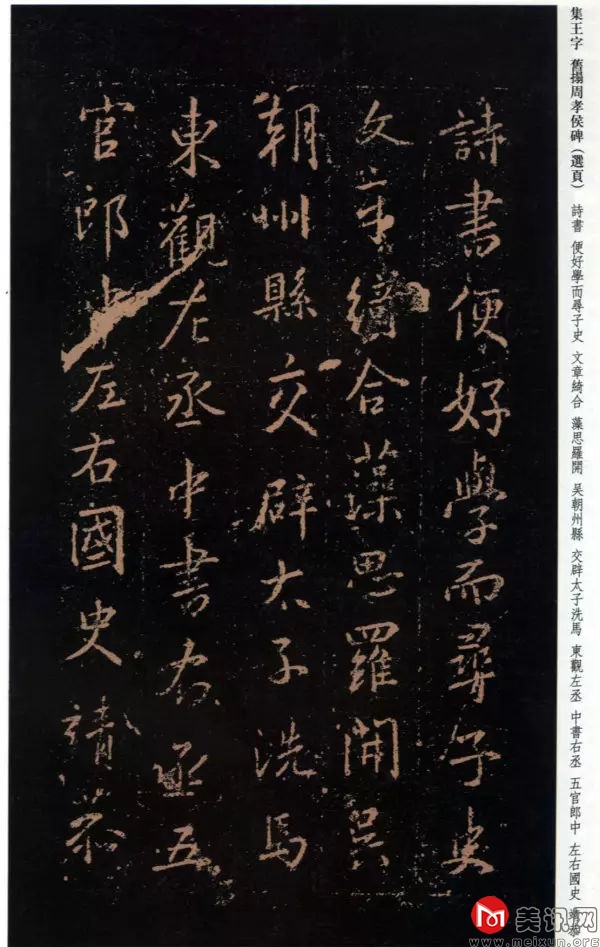 集王字 舊搨周孝侯碑（選頁） 詩書 便好學而尋子史 文章綺合 藻思羅開 吴朝州縣 交辟太子洗馬 東觀左丞 中書右丞 五官郎中 左右國史 靖恭
詩書便好學而尋子史
文章綺合藻思羅開吳
朝州縣交辟太子洗馬
東觀左丞中書右丞五
官郎中左右國史靖恭
美讯网
www.meixun.org